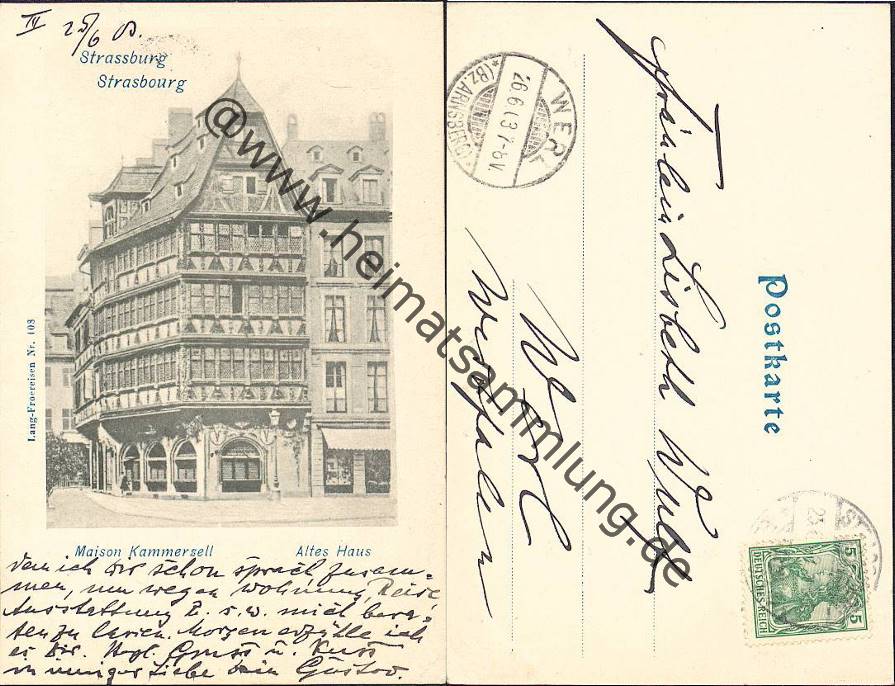 IV 25/6 03.
Strassburg
Strasbourg
Lang-Froereisen Nr. 103
Maison Kammerzell Altes Haus
dem ich dir schon sprach zusam-
men, um wegen Wohnung, Reise
Ausstattung u. s. w. mich bera-
ten zu lassen. Morgen erzähle ich
es Dir. Hzgl. Gruss u. Kuss
in inniger Liebe Dein Gustav.
@www.heimatsammlung.de
WERL
*(BZ. ARNSBERG)
26.6.03.7-8V.
Postkarte
Fräulein Lisbeth
Werl
Westfalen
5 5
DEUTSCHES REICH